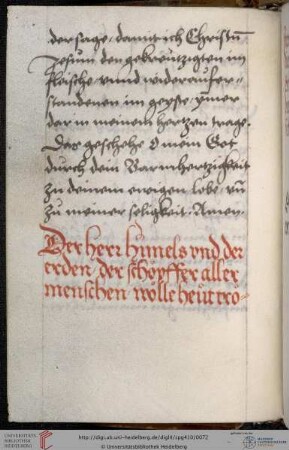 der sage / damit ich Christū
Jesum den gekreutzigten im
fläische / vnnd wideraufer⸗
standenen im geyste / ymer
dar in meinem hertzen trage.
Das geschehe O mein Got
durch dein Barmhertzigkeit
zu deinem ewigen lobe / vn̄
zu meiner seligkeit. Amen.
Der herr himels vnd der
erden / der schöpffer aller
menschen / wölle heut vō⸗
UNIVERSITÄTS-
BIBLIOTHEK
HEIDELBERG
http://digi.ub.uni-heidelberg.de/diglit/cpg418/0072
© Universitätsbibliothek Heidelberg